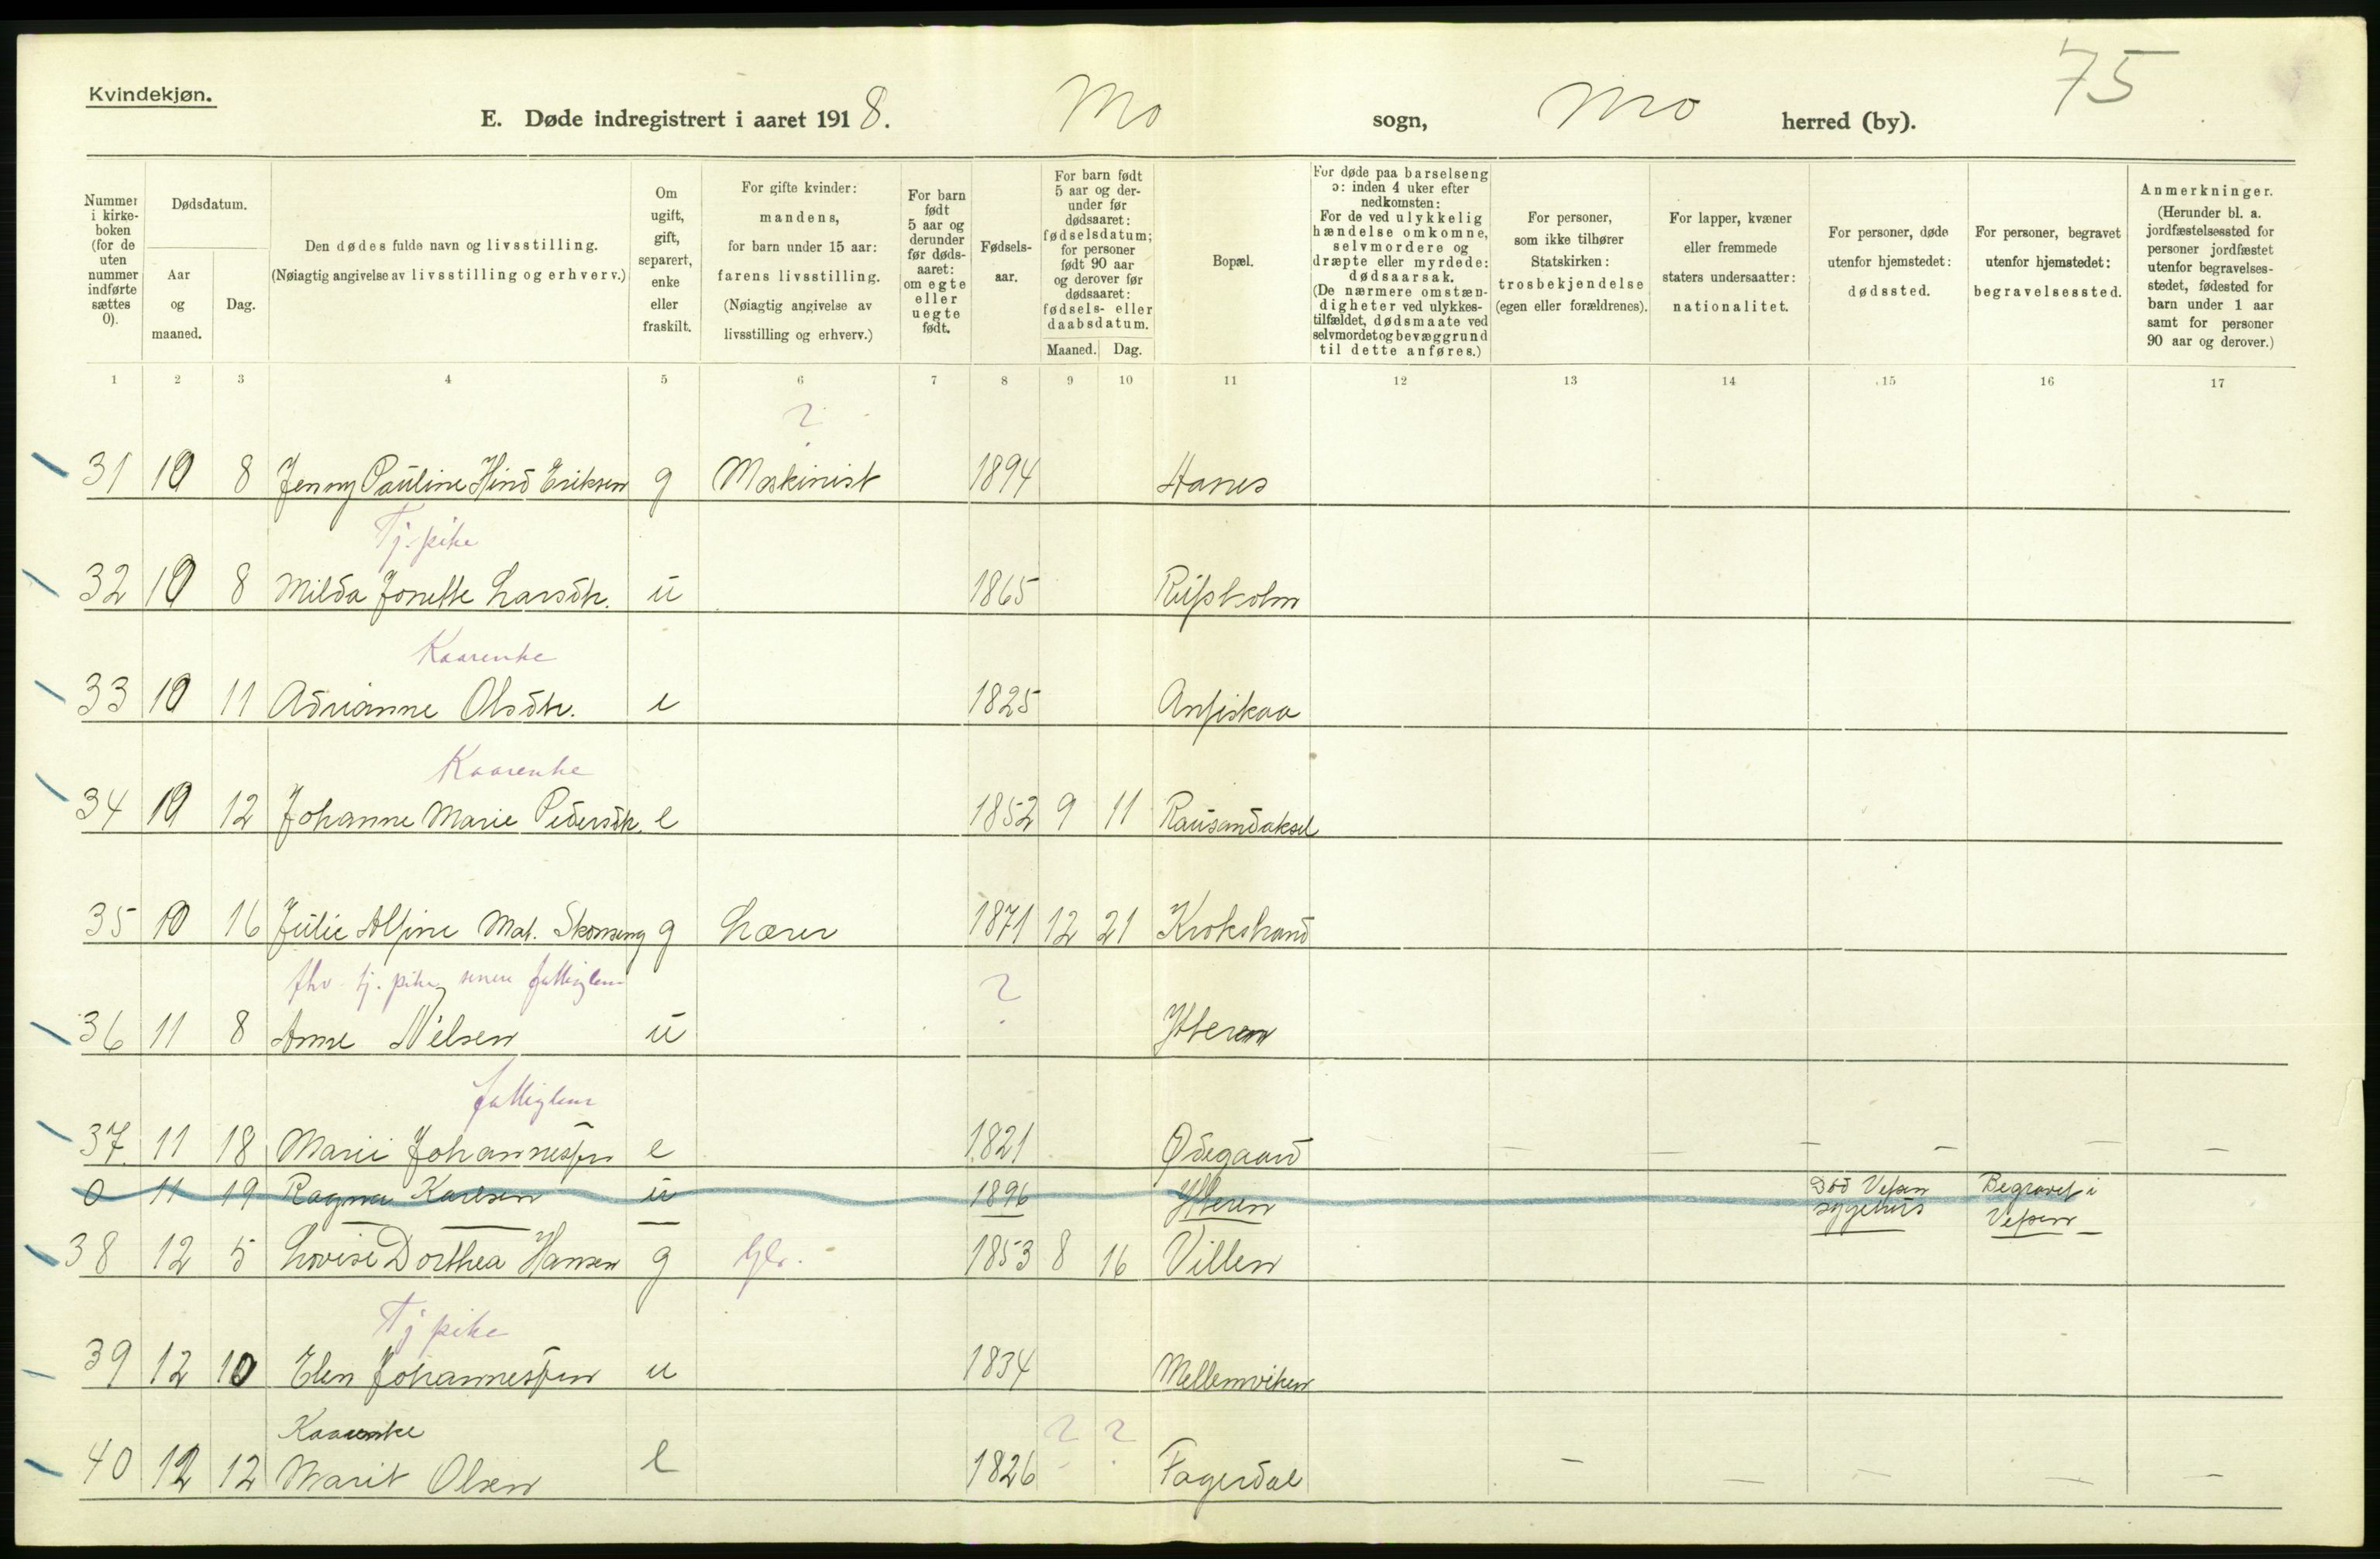 75
Kvindekjøn.
E. Døde indregistrert i aaret 1918. Mo sogn, Mo herred (by).
Nummer i kirke-boken (for de uten nummer indførte sættes 0).
Dødsdatum.
Aar og maaned.
Dag.
Den dødes fulde navn og livsstilling.
(Nøiagtig angivelse av livsstilling og erhverv.)
Om ugift, gift, separert, enke eller fraskilt.
For gifte kvinder: mandens, for barn under 15 aar: farens livsstilling. (Nøiagtig angivelse av livsstilling og erhverv.)
For barn født 5 aar og derunder før døds-aaret: om egte eller uegte født.
Fødsels-aar.
For barn født 5 aar og der-under før dødsaaret: fødselsdatum; for personer født 90 aar og derover før dødsaaret: fødsels- eller daabsdatum.
Maaned. Dag.
Bopæl.
For døde paa barselseng ɔ: inden 4 uker efter nedkomsten: For de ved ulykkelig hændelse omkomne, selvmordere og dræpte eller myrdede: dødsaarsak. (De nærmere omstæn-digheter ved ulykkes-tilfældet, dødsmaate ved selvmordet og bevæggrund til dette anføres.)
For personer, som ikke tilhører Statskirken: trosbekjendelse (egen eller forældrenes).
For lapper, kvæner eller fremmede staters undersaatter: nationalitet.
For personer, døde utenfor hjemstedet: dødssted.
For personer, begravet utenfor hjemstedet: begravelsessted.
Anmerkninger. (Herunder bl. a. jordfæstelsessted for personer jordfæstet utenfor begravelses-stedet, fødested for barn under 1 aar samt for personer 90 aar og derover.)
1 2 3 4 5 6 7 8 9 10 11 12 13 14 15 16 17
?
31 10 8 Jenny Pauline Hind Eriksen g Maskinist 1894 Hanes
Tj. pike
32 10 8 Milda Jonette Larsdtr. u 1865
Kaarenke
33 10 11 Adrianne Olsdtr. e 1825 Anfiskaa
Kaarenke
34 10 12 Johanne Marie Pedersdtr. e 1852 9 11 Rausandaksel
35 10 16 Julie Alfine Mat. Skonseng g Lærer 1871 12 21 Krokstrand
fhv. tj. pike, senere fattiglem ?
36 11 8 Anne Nilsen u Ytteren
fattiglem
37. 11 18 Marie Johannessen e 1821 Ødegaard – – – – –
0 11 19 Ragna Karlsen u 1896 Ytteren Død Vefsen sygehus Begravet i Vefsen
38 12 5 Lovise Dorthea Hansen g 1853 8 16 Villen
Tj pike
39 12 10 Elen Johannessen u 1834 Mellemviken
Kaarenke ? ?
40 12 12 Marit Olsen e 1826 Fagerdal – – – – –